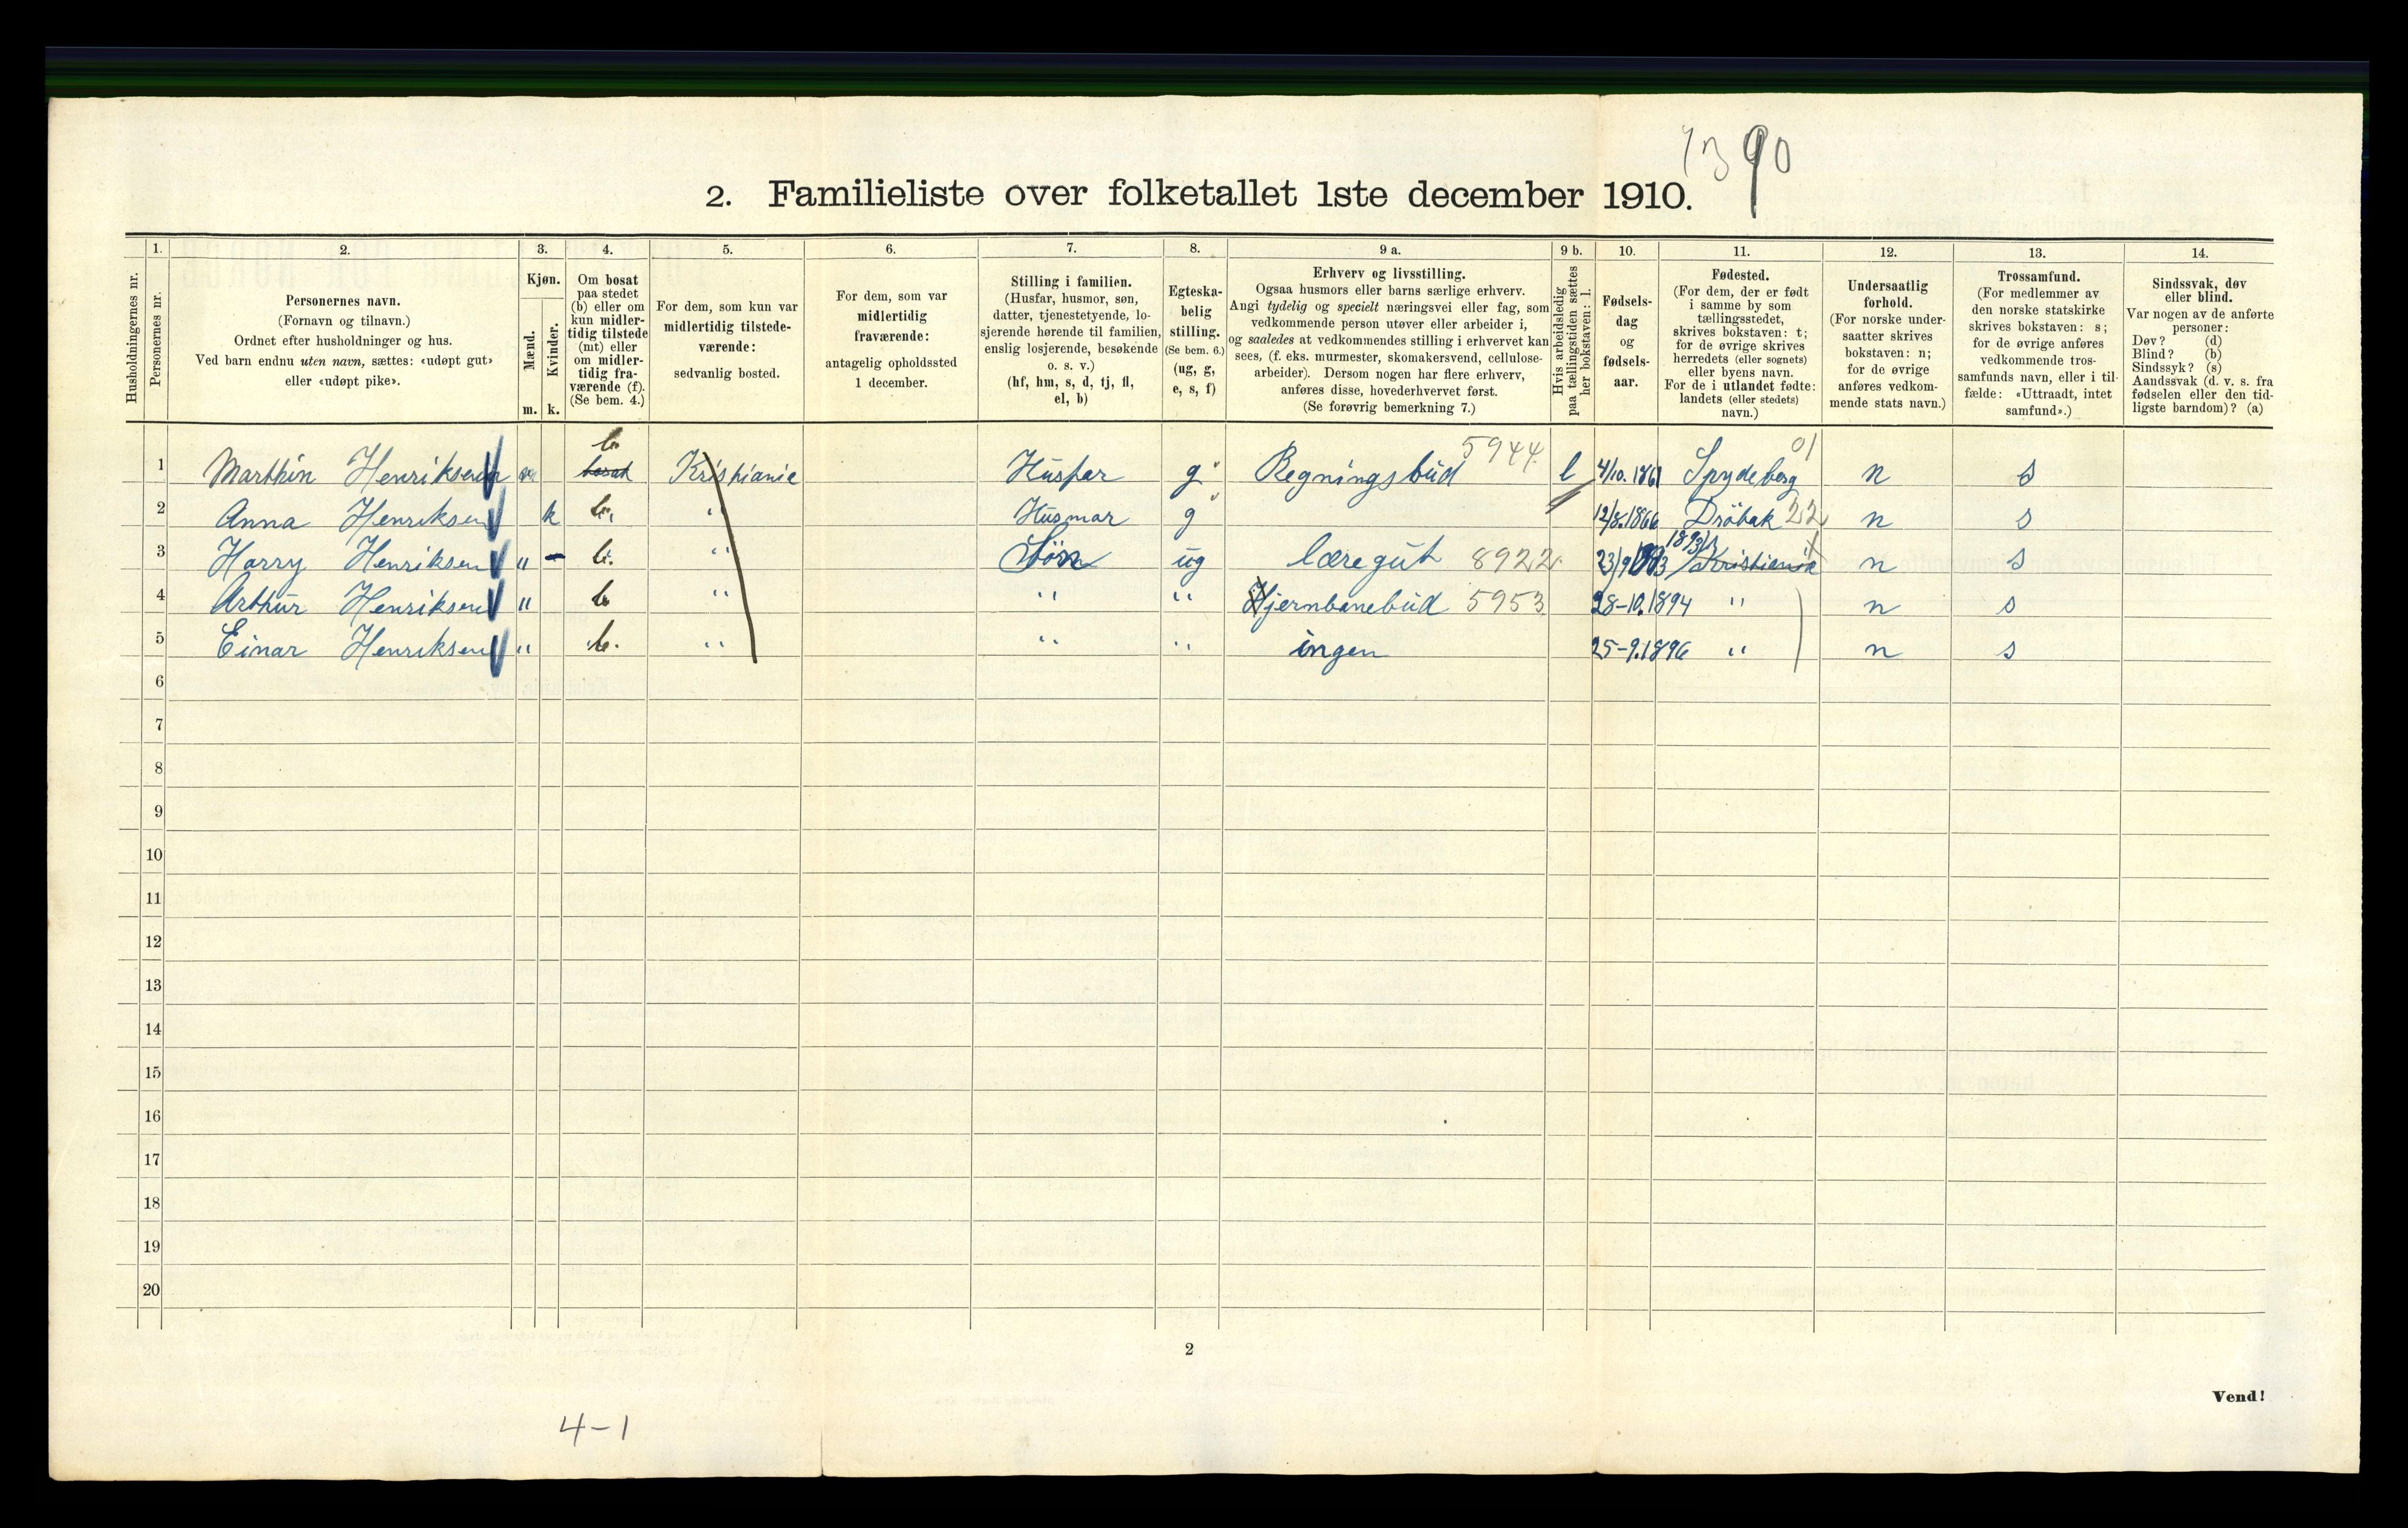 7390
2. Familieliste over folketallet 1ste december 1910.
1. 2. 3. 4. 5. 6. 7. 8. 9 a. 9 b. 10. 11. 12. 13. 14.
Husholdningernes nr.
Personernes nr.
Personernes navn.
(Fornavn og tilnavn.)
Ordnet efter husholdninger og hus.
Ved barn endnu uten navn, sættes: «udøpt gut»
eller «udøpt pike».
Kjøn.
Mænd.
Kvinder.
m. k.
Om bosat
paa stedet
(b) eller om
kun midler-
tidig tilstede
(mt) eller
om midler-
tidig fra-
værende (f).
(Se bem. 4.)
For dem, som kun var
midlertidig tilstede-
værende:
sedvanlig bosted.
For dem, som var
midlertidig
fraværende:
antagelig opholdssted
1 december.
Stilling i familien.
(Husfar, husmor, søn,
datter, tjenestetyende, lo-
sjerende hørende til familien,
enslig losjerende, besøkende
o. s. v.)
(hf, hm, s, d, tj, fl,
el, b)
Egteska-
belig
stilling.
(Se bem. 6.)
(ug, g,
e, s, f)
Erhverv og livsstilling.
Ogsaa husmors eller barns særlige erhverv.
Angi tydelig og specielt næringsvei eller fag, som
vedkommende person utøver eller arbeider i,
og saaledes at vedkommendes stilling i erhvervet kan
sees, (f. eks. murmester, skomakersvend, cellulose-
arbeider). Dersom nogen har flere erhverv,
anføres disse, hovederhvervet først.
(Se forøvrig bemerkning 7.)
Hvis arbeidsledig
paa tællingstiden sættes
her bokstaven: l.
Fødsels-
dag
og
fødsels-
aar.
Fødested.
(For dem, der er født
i samme by som
tællingsstedet,
skrives bokstaven: t;
for de øvrige skrives
herredets (eller sognets)
eller byens navn.
For de i utlandet fødte:
landets (eller stedets)
navn.)
Undersaatlig
forhold.
(For norske under-
saatter skrives
bokstaven: n;
for de øvrige
anføres vedkom-
mende stats navn.)
Trossamfund.
(For medlemmer av
den norske statskirke
skrives bokstaven: s;
for de øvrige anføres
vedkommende tros-
samfunds navn, eller i til-
fælde: «Uttraadt, intet
samfund».)
Sindssvak, døv
eller blind.
Var nogen av de anførte
personer:
Døv? (d)
Blind? (b)
Sindssyk? (s)
Aandssvak (d. v. s. fra
fødselen eller den tid-
ligste barndom)? (a)
1 Marthin Henriksen m b. bosat Kristiania Husfar g Regningsbud 5944 l 4/10.1861 Spydeberg 01 n s
2 Anna Henriksen k b. " Husmor g 12/8.1866 Dröbak 22 n s
3 Harry Henriksen " b. " Sön ug læregut 8922 23/9 1893 Kristiania n s
4 Arthur Henriksen " b " " " Hjernbanebud 5953 28-10.1894 " n s
5 Einar Henriksen " b. " " " ingen 25-9.1896 " n s
6
7
8
9
10
11
12
13
14
15
16
17
18
19
20
2
Vend!
4-1